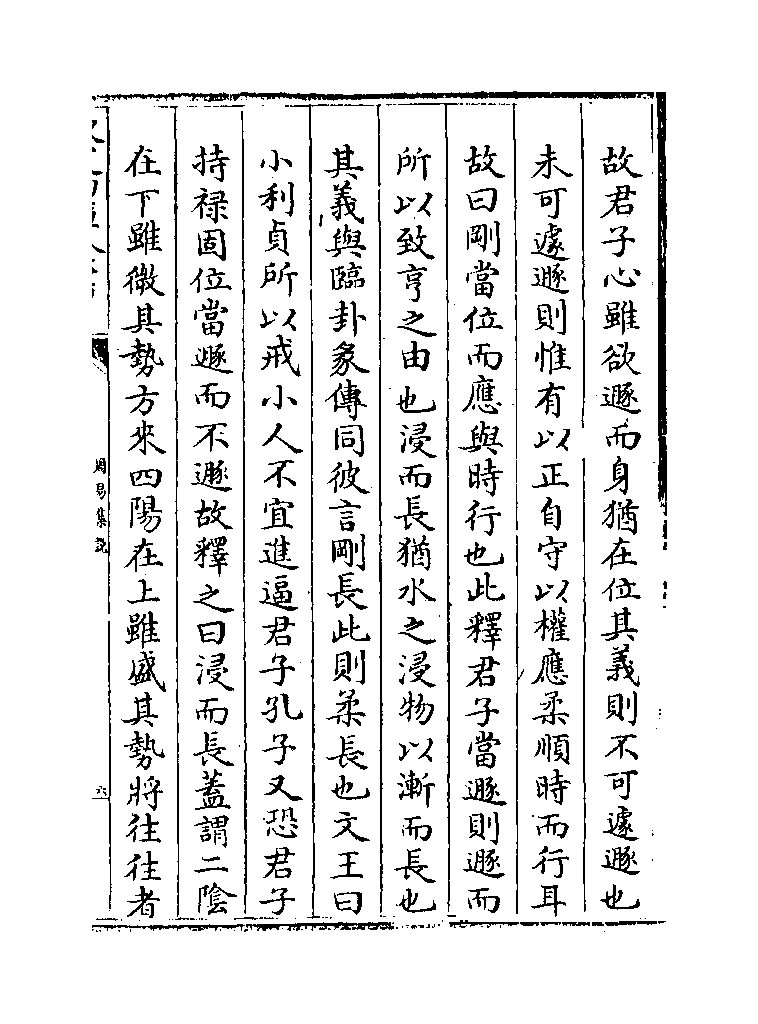 故君子心雖欲遯而身猶在位其義則不可遽遯也
未可遽遯則惟有以正自守以權應柔順時而行耳
故曰剛當位而應與時行也此釋君子當遯則遯而
所以致亨之由也浸而長猶水之浸物以漸而長也
其義與臨卦彖傳同彼言剛長此則柔長也文王曰
小利貞所以戒小人不宜進逼君子孔子又恐君子
持祿固位當遯而不遯故釋之曰浸而長蓋謂二陰
在下雖微其勢方來四陽在上雖盛其勢將往往者
周易集說
六